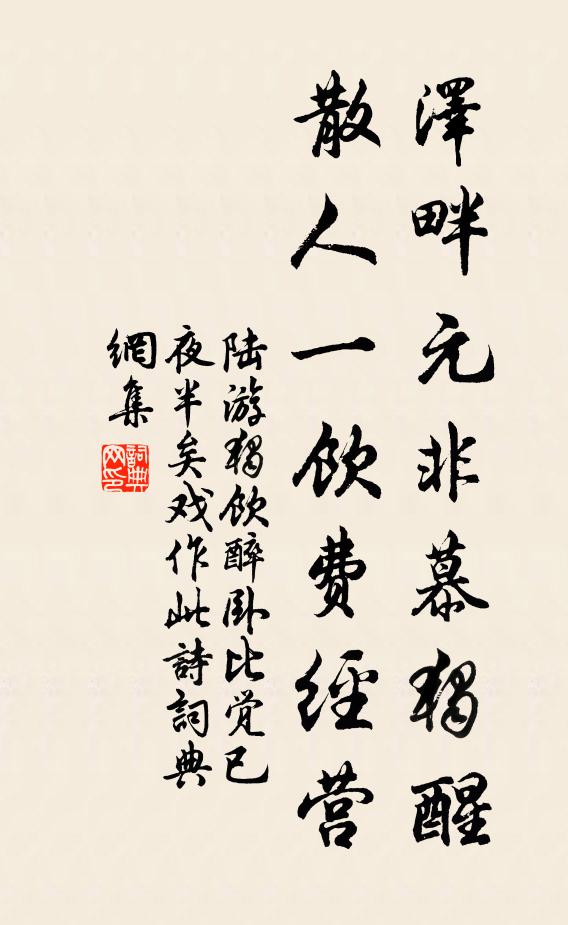 澤畔元非慕獨醒
散人一飲費經营
陆游獨飲醉卧比觉已
夜半矣戏作此詩詞典
網集
詞典
网印